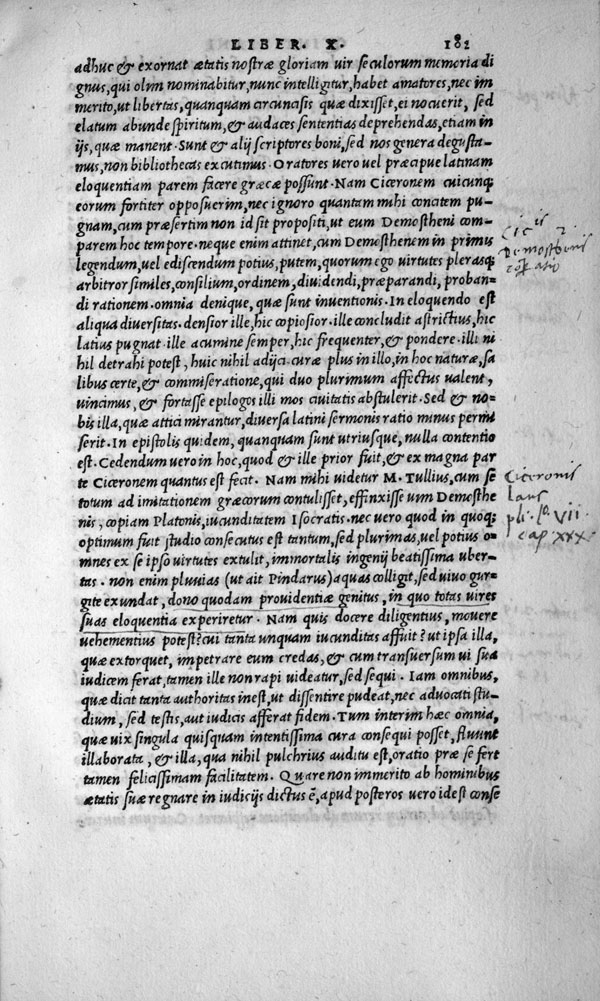 LIBER. X. 182
adhuc & exornat ætatis nostræ gloriam uir seculorum memoria di
gnus, qui olim nominabitur, nunc intelligitur, habet amatores, nec im
merito, ut libertas, quanquam circuncisis quæ dixisset, ei nocuerit, sed
elatum abunde spiritum, & audaces sententias deprehendas, etiam in
ijs, quæ manent. Sunt & alij scriptores boni, sed nos genera degusta-
mus, non bibliothecas excutimus. Oratores uero uel præcipue latinam
eloquentiam parem facere græcæ possunt. Nam Ciceronem cuicunq;
eorum fortiter opposuerim, nec ignoro quantam mihi concitem pu-
gnam, cum præsertim non id sit propositi, ut eum Demostheni com-
parem hoc tempore. neque enim attinet, cum Demosthenem in primis
legendum, uel ediscendum potius, putem, quorum ego uirtutes plerasq;
arbitror similes, consilium, ordinem, diuidendi, præparandi, proban-
di rationem. omnia denique, quæ sunt inuentionis. In eloquendo est
aliqua diuersitas. densior ille, hic copiosior. ille concludit astrictius, hic
latius pugnat. ille acumine semper, hic frequenter, & pondere. illi ni
hil detrahi potest, huic nihil adijci. curæ plus in illo, in hoc naturæ, sa
libus certe, & commiseratione, qui duo plurimum affectus ualent,
uincimus, & fortasse epilogos illi mos ciuitatis abstulerit. Sed & no-
bis illa, quæ attici mirantur, diuersa latini sermonis ratio minus permi
serit. In epistolis quidem, quanquam sunt utriusque, nulla contentio
est. Cedendum uero in hoc, quod & ille prior fuit, & ex magna par
te Ciceronem quantus est fecit. Nam mihi uidetur M. Tullius, cum se
totum ad imitationem græcorum contulisset, effinxisse uim Demosthe
nis, copiam Platonis, iucunditatem Isocratis. nec uero quod in quoq;
optimum fuit studio consecutus est tantum, sed plurimas, uel potius o-
mnes ex se ipso uirtutes extulit, immortalis ingenij beatissima uber-
tas. non enim pluuias (ut ait Pindarus) aquas colligit, sed uiuo gur-
gite exundat, dono quodam prouidentiæ genitus, in quo totas uires
suas eloquentia experiretur. Nam quis docere diligentius, mouere
uehementius potest? cui tanta unquam iucunditas affuit? ut ipsa illa,
quæ extorquet, impetrare eum credas, & cum transuersum ui sua
iudicem ferat, tamen ille non rapi uideatur, sed sequi. Iam omnibus,
quæ dicit tanta authoritas inest, ut dissentire pudeat, nec aduocati stu-
dium, sed testis, aut iudicis afferat fidem. Tum interim hæc omnia,
quæ uix singula quisquam intentissima cura consequi posset, fluunt
illaborata, & illa, qua nihil pulchrius auditu est, oratio præ se fert
tamen felicissimam facilitatem. Quare non immerito ab hominibus
ætatis suæ regnare in iudicijs dictus ē, apud posteros uero id est conse
Demostenis
Ciceronis
laus
pli. lo. VII
cap xxx